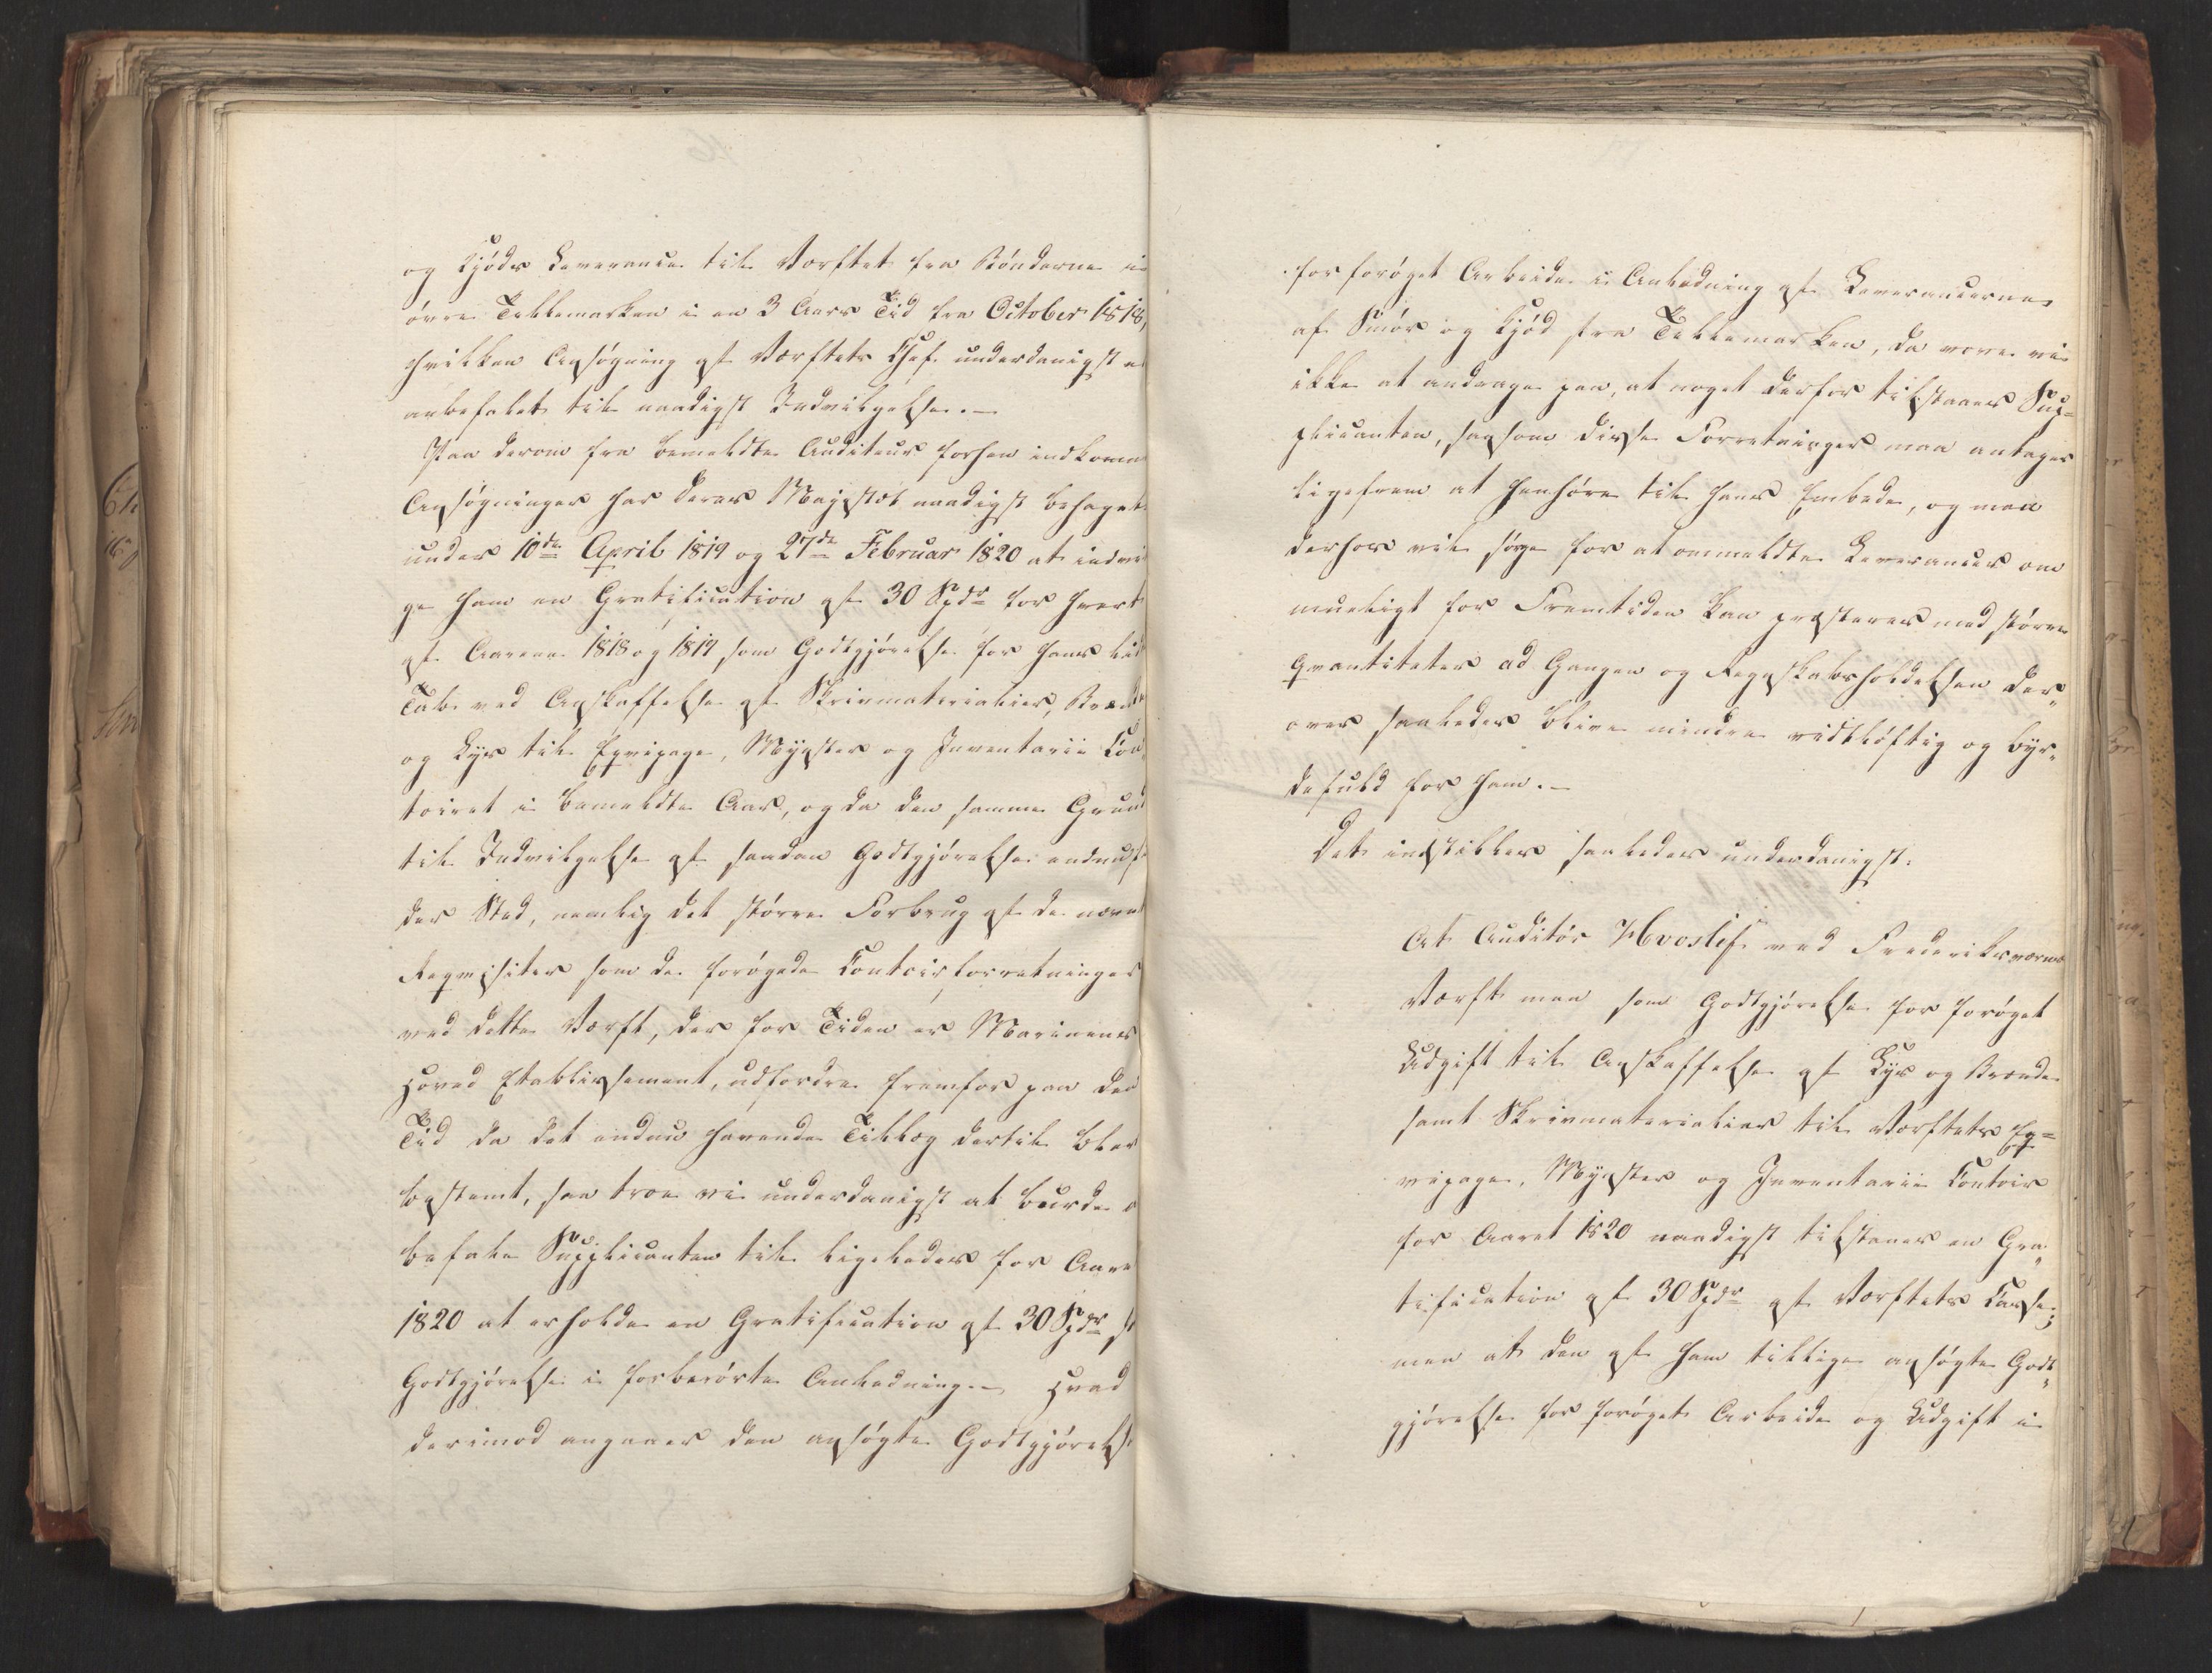 og Kjöds Leverance til Værftet fra Bönderne i
övre Tellemarken i en 3 Aars Tid fra October 1818,
hvilken Ansögning af Værftets Chef underdanigst er
anbefalet til naadigst Indvilgelse.—
Paa derom fra bemeldte Auditeur forhen indkomne
Ansögninger har Deres Majestæt naadigst behaget
under 10de April 1819 og 27de Februar 1820 at indvil
ge ham en Gratification af 30 Spdr for hvert
af Aarene 1818 og 1819 som Godtgjörelse for hans lidte
Tab ved Anskaffelse af Skrivmaterialier, Brænde
og Lys til Eqvipage, Mynster og Inventarii Con
toiret i bemeldte Aar, og da den samme Grund
til Indvilgelse af saadan Godtgjörelse endnu finder
der Sted, nemlig det större Forbrug af de nævnte
Reqvisiter som de forögede Contoirforretninger
ved dette Værft, der for Tiden er Marinens
Hoved Etablissement, udfordre fremfor paa den
Tid da det endnu havende Tillæg dertil blev
bestemt, saa troe vi underdanigst at burde an
befale Supplicanten til ligeledes for Aaret
1820 at erholde en Gratification af 30 Spdr som
Godtgjörelse i forberörte Anledning.— Hvad
derimod angaaer den ansögte Godtgjörelse
for foröget Arbeide i Anledning af Leverancerne
af Smör og Kjöd fra Tellemarken, da vove vi
ikke at andrage paa, at noget derfor tilstaaes Sup=
plicanten, saasom disse Forretninger maa antages
ligefrem at henhöre til hans Embede, og man
derhos vil sörge for at ommeldte Leverancer om
mueligt for Fremtiden kan præsteres med större
Qvantiteter ad Gangen og Regnskabsholdelsen der„
over saaledes blive mindre vidtlöftig og byr„
defuld for ham.—
Det indstilles saaledes underdanigst:
At Auditör Hvoslef ved Frederiksværns
Værft maa som Godtgjörelse for foröget
Udgift til Anskaffelse af Lys og Brænde
samt Skrivmaterialier til Værftets Eq=
vipage, Mynster og Inventarii Contoir
for Aaret 1820 naadigst tilstaaes en Gra„
tification af 30 Spdr af Værftets Casse;
men at den af ham tillige ansögte Godt„
gjörelse for foröget Arbeide og Udgift i